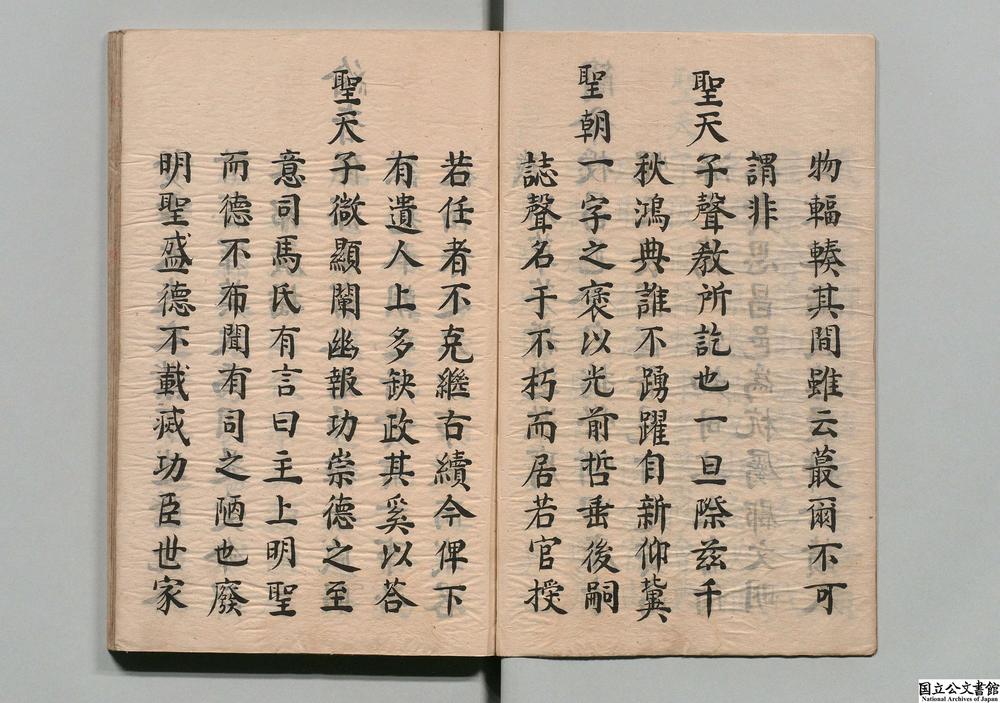 物輻輳其間雖云蕞爾不可
謂非
聖天子聲教所訖也一旦際茲千
秋鴻典誰不踴躍自新仰冀
聖朝一字之褒以光前哲垂後嗣
誌聲名于不朽而居若官授
若任者不克繼古續今俾下
有遺人上多缺政其奚以荅
聖天子微顯闡幽報功崇德之至
意司馬氏有言曰主上明聖
而德不布聞有司之陋也廢
明聖盛德不載滅功臣世家
国立公文書館
National Archives of Japan